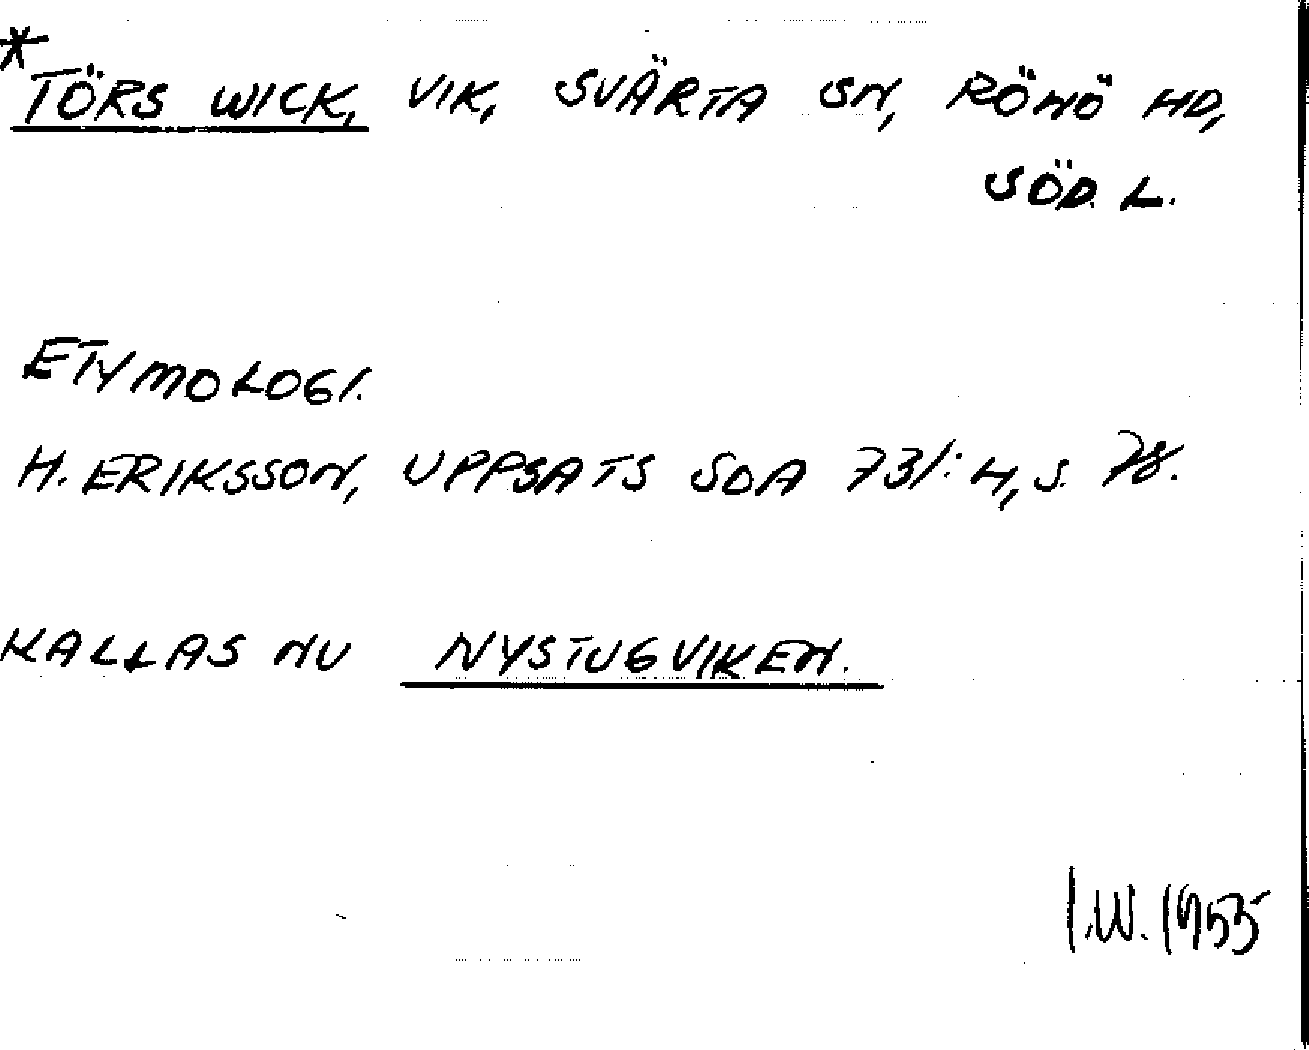 *TÖRS WICK, VIK, SVÄRTA SN, RÖNÖ HD,
SÖD. L.
ETYMOLOGI.
H. ERIKSSON, UPPSATS SOA 731:4, S. 78.
KALLAS NU NYSTUGVIKEN.
I.W. 1955